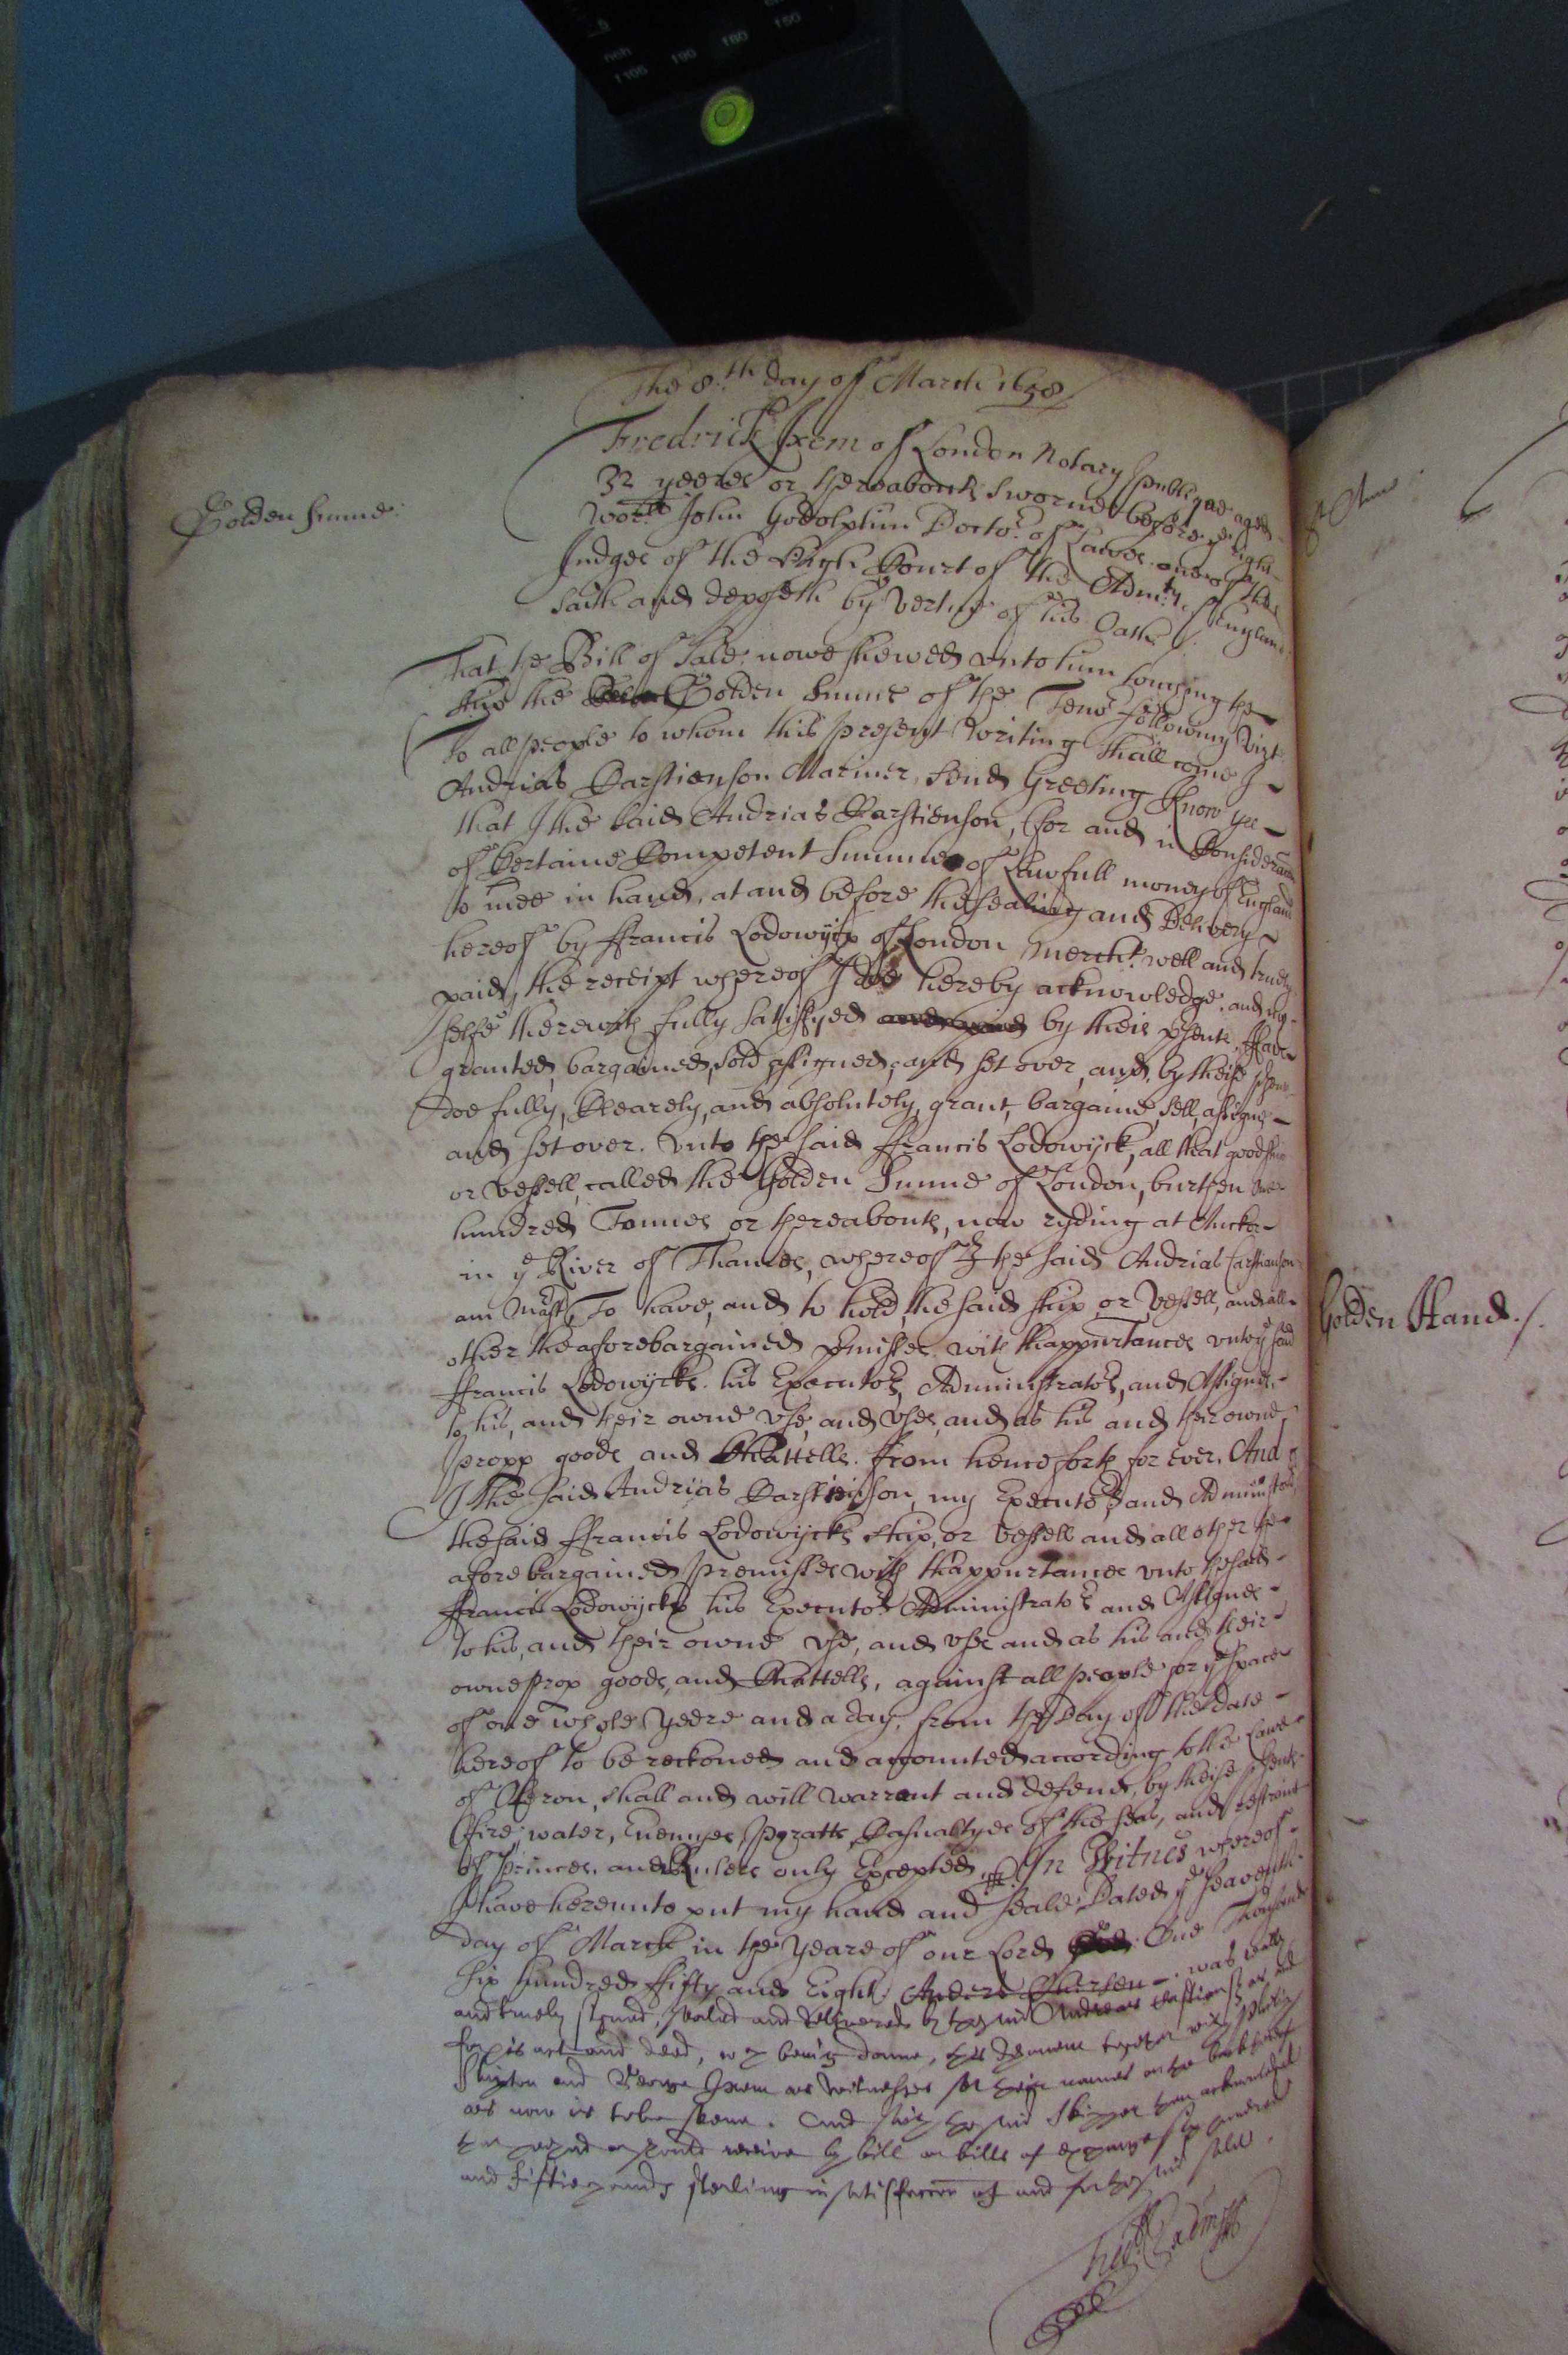 The 8:th day of March 1658
Golden Sunne:
Fredrick Ixem of London Notary publique aged
32 yeeres or thereabouts sworne before ye right
worll John Godolphin Doctor of Lawes one of the
Judges of the High Court of the Admlty of England
saith and deposeth by vertue of his Oath
That the Bill of Sale nowe shewed vnto him touching the
the Golden Sunne of the Tenor following Vizt
To all people to whom this present writing shall come I
Andrias Carstienson Mariner, send Greeting Know yee
that I the said Andrias Carstienson, for and in Consideracon
of Certaine Competent Summe of Lawfull money of England
to mee in hand, at and before the sealing and Delivery
hereof by ffrancis Lodowijck of London Mercht. well and truely
paid, the receipt whereof I doe hereby acknowledge, and my
selfe therewith fully satisfyed and by theis psents, Have
granted, bargained, sold assigned, and set over, and by theise psents
doe fully, Clearely, and absolutely, grant, bargaine, sell, assigne
and set over. vnto the said ffrancis Lodowijck, all that good ship
or vessell, called the Golden Sunne of London, burthen One
hundred Tonnes or thereabouts, now ryding at Anckor
in ye River of Thames, whereof I the said Andrias Carstianson
am Mastr, To have, and to hold, the said ship or Vessell, and all
other the aforebargained pmisses with thappurtances vnto ye said
ffrancis Lodowijcks his Executors, Administrators, and Assignes,
to his, and their owne vse, and vses, and as his and their owne
propp goods and Chattells. from henceforth for ever. And
I the said Andrias Carstienson, my Executors and Administors
the said ffrancis Lodowijcks ship, or vessell and all other the
aforebargained premisses with thappurtances vnto the said
ffrancis Lodowijcks his Executors Administrators and Assignes
to his, and their owne vse, and vses and as his and their
owne prop goods, and Chattells, against all people for ye space
of one whole yeere and a day, from the Day of the date
hereof to be reckoned and accounted according to the Lawe
of Oleron, shall and will warrant and defend, by theise psents
(fire, water, Enemyes, pyratts, Casualtyes of the seas, and restraint
of Princes, and Rulers only Excepted, In Witnes whereof
I have hereunto put my hand and seale Dated ye seaventh
day of March in the yeare of our Lord One Thousand
six hundred fifty and Eight. Anders was really
and truely signed, sealed and delivered by the said Andreas
for his act and deed, wch being donne, this deponent together with
and George Ixem as witnesses set their names on the back thereof
as now is to be seene. And saith the said Skipper then acknowledged
receive by bill or bills of exchange six hundred
and fiftie pounds sterling in satisfaccon of and for the said sale.
Golden Hand./.